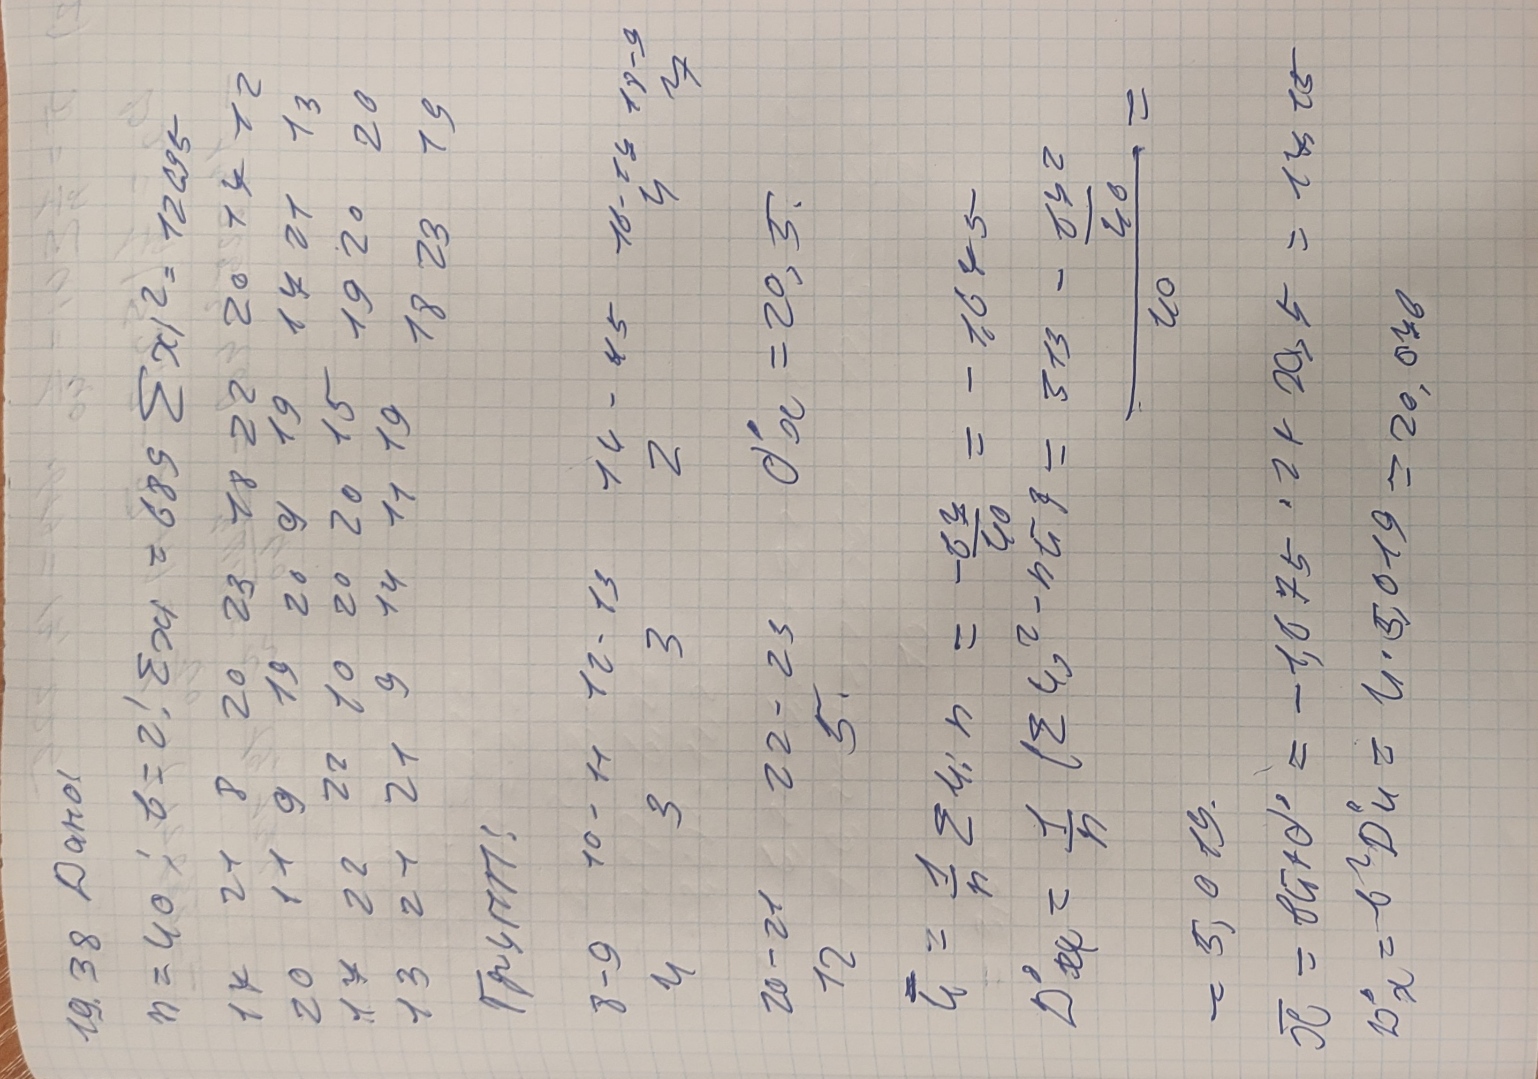 19.38 Дано:
n = 40; b = 2; Σxi = 689 Σxi² = 12695
17 21 8 20 23 18 22 20 17 12
20 11 9 19 20 9 19 17 21 13
17 22 22 10 20 20 15 19 20 20
13 21 21 9 14 11 19 18 23 19
Групп:
8-9 10-11 12-13 14-15 16-17 18-9
4 3 3 2 4 7
20-21 22-23 d*x = 20,5.
12 5.
ū = 1/n Σui n = -67/40 = -1,675
D*xx = 1/n (Σui² - nū²) = (313 - 67²/40)/40 =
= 5,019.
x̄ = bū+d* = -1,675 · 2+ 20,5 = 17,15
D*x = b²D*u = 4·5,019 = 20,076